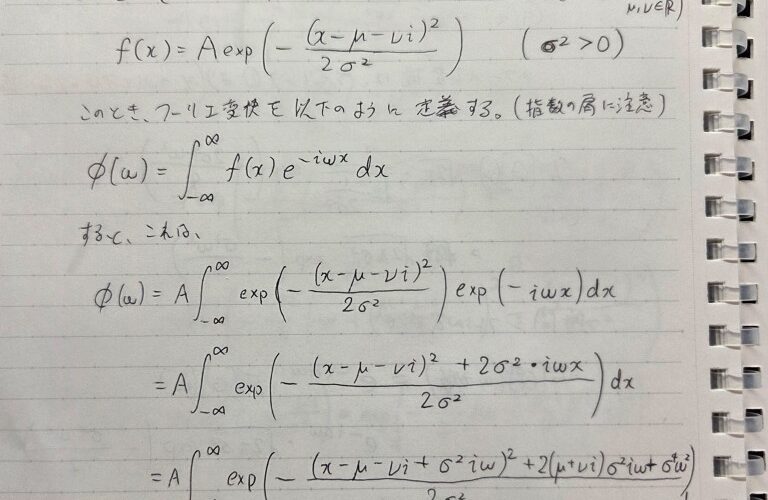 μ,ν∈ℝ)
f(x) = A exp(- (x-μ-νi)² / 2σ²) (σ²>0)
このとき、フーリエ変換を以下のように定義する。(指数の肩に注意)
φ(ω) = ∫_{-∞}^{∞} f(x) e^{-iωx} dx
すると、これは、
φ(ω) = A ∫_{-∞}^{∞} exp(- (x-μ-νi)² / 2σ²) exp(-iωx) dx
= A ∫_{-∞}^{∞} exp(- (x-μ-νi)² + 2σ²・iωx / 2σ²) dx
= A ∫^{∞} exp(- (x-μ-νi+σ²iω)² + 2(μ+νi)σ²iω + σ⁴ω² / 2σ²)